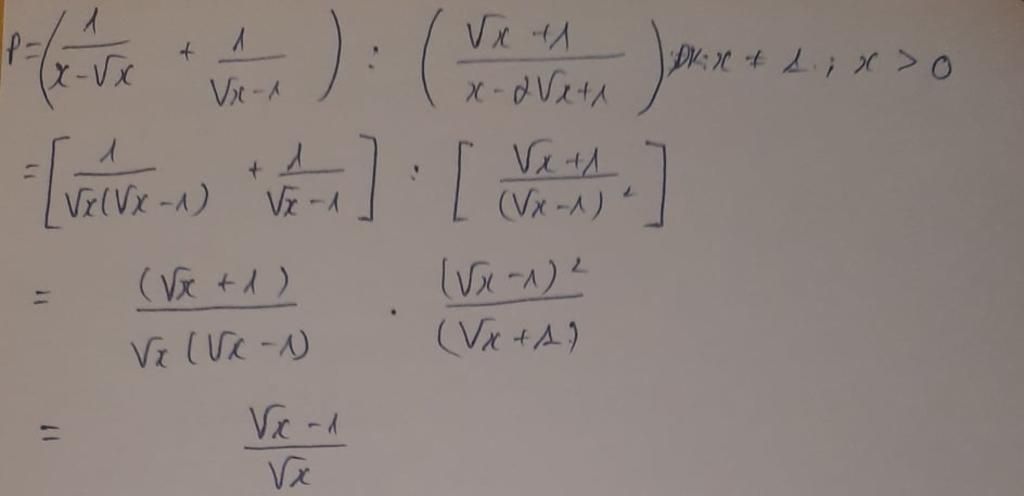 P = ( 1/(x - √x) + 1/(√x - 1) ) : ( (√x + 1)/(x - 2√x + 1) ) ĐK: x ≠ 1 ; x > 0
= [ 1/(√x(√x - 1)) + 1/(√x - 1) ] : [ (√x + 1)/(√x - 1)² ]
= (√x + 1)/(√x (√x - 1)) . (√x - 1)²/(√x + 1)
= (√x - 1)/√x